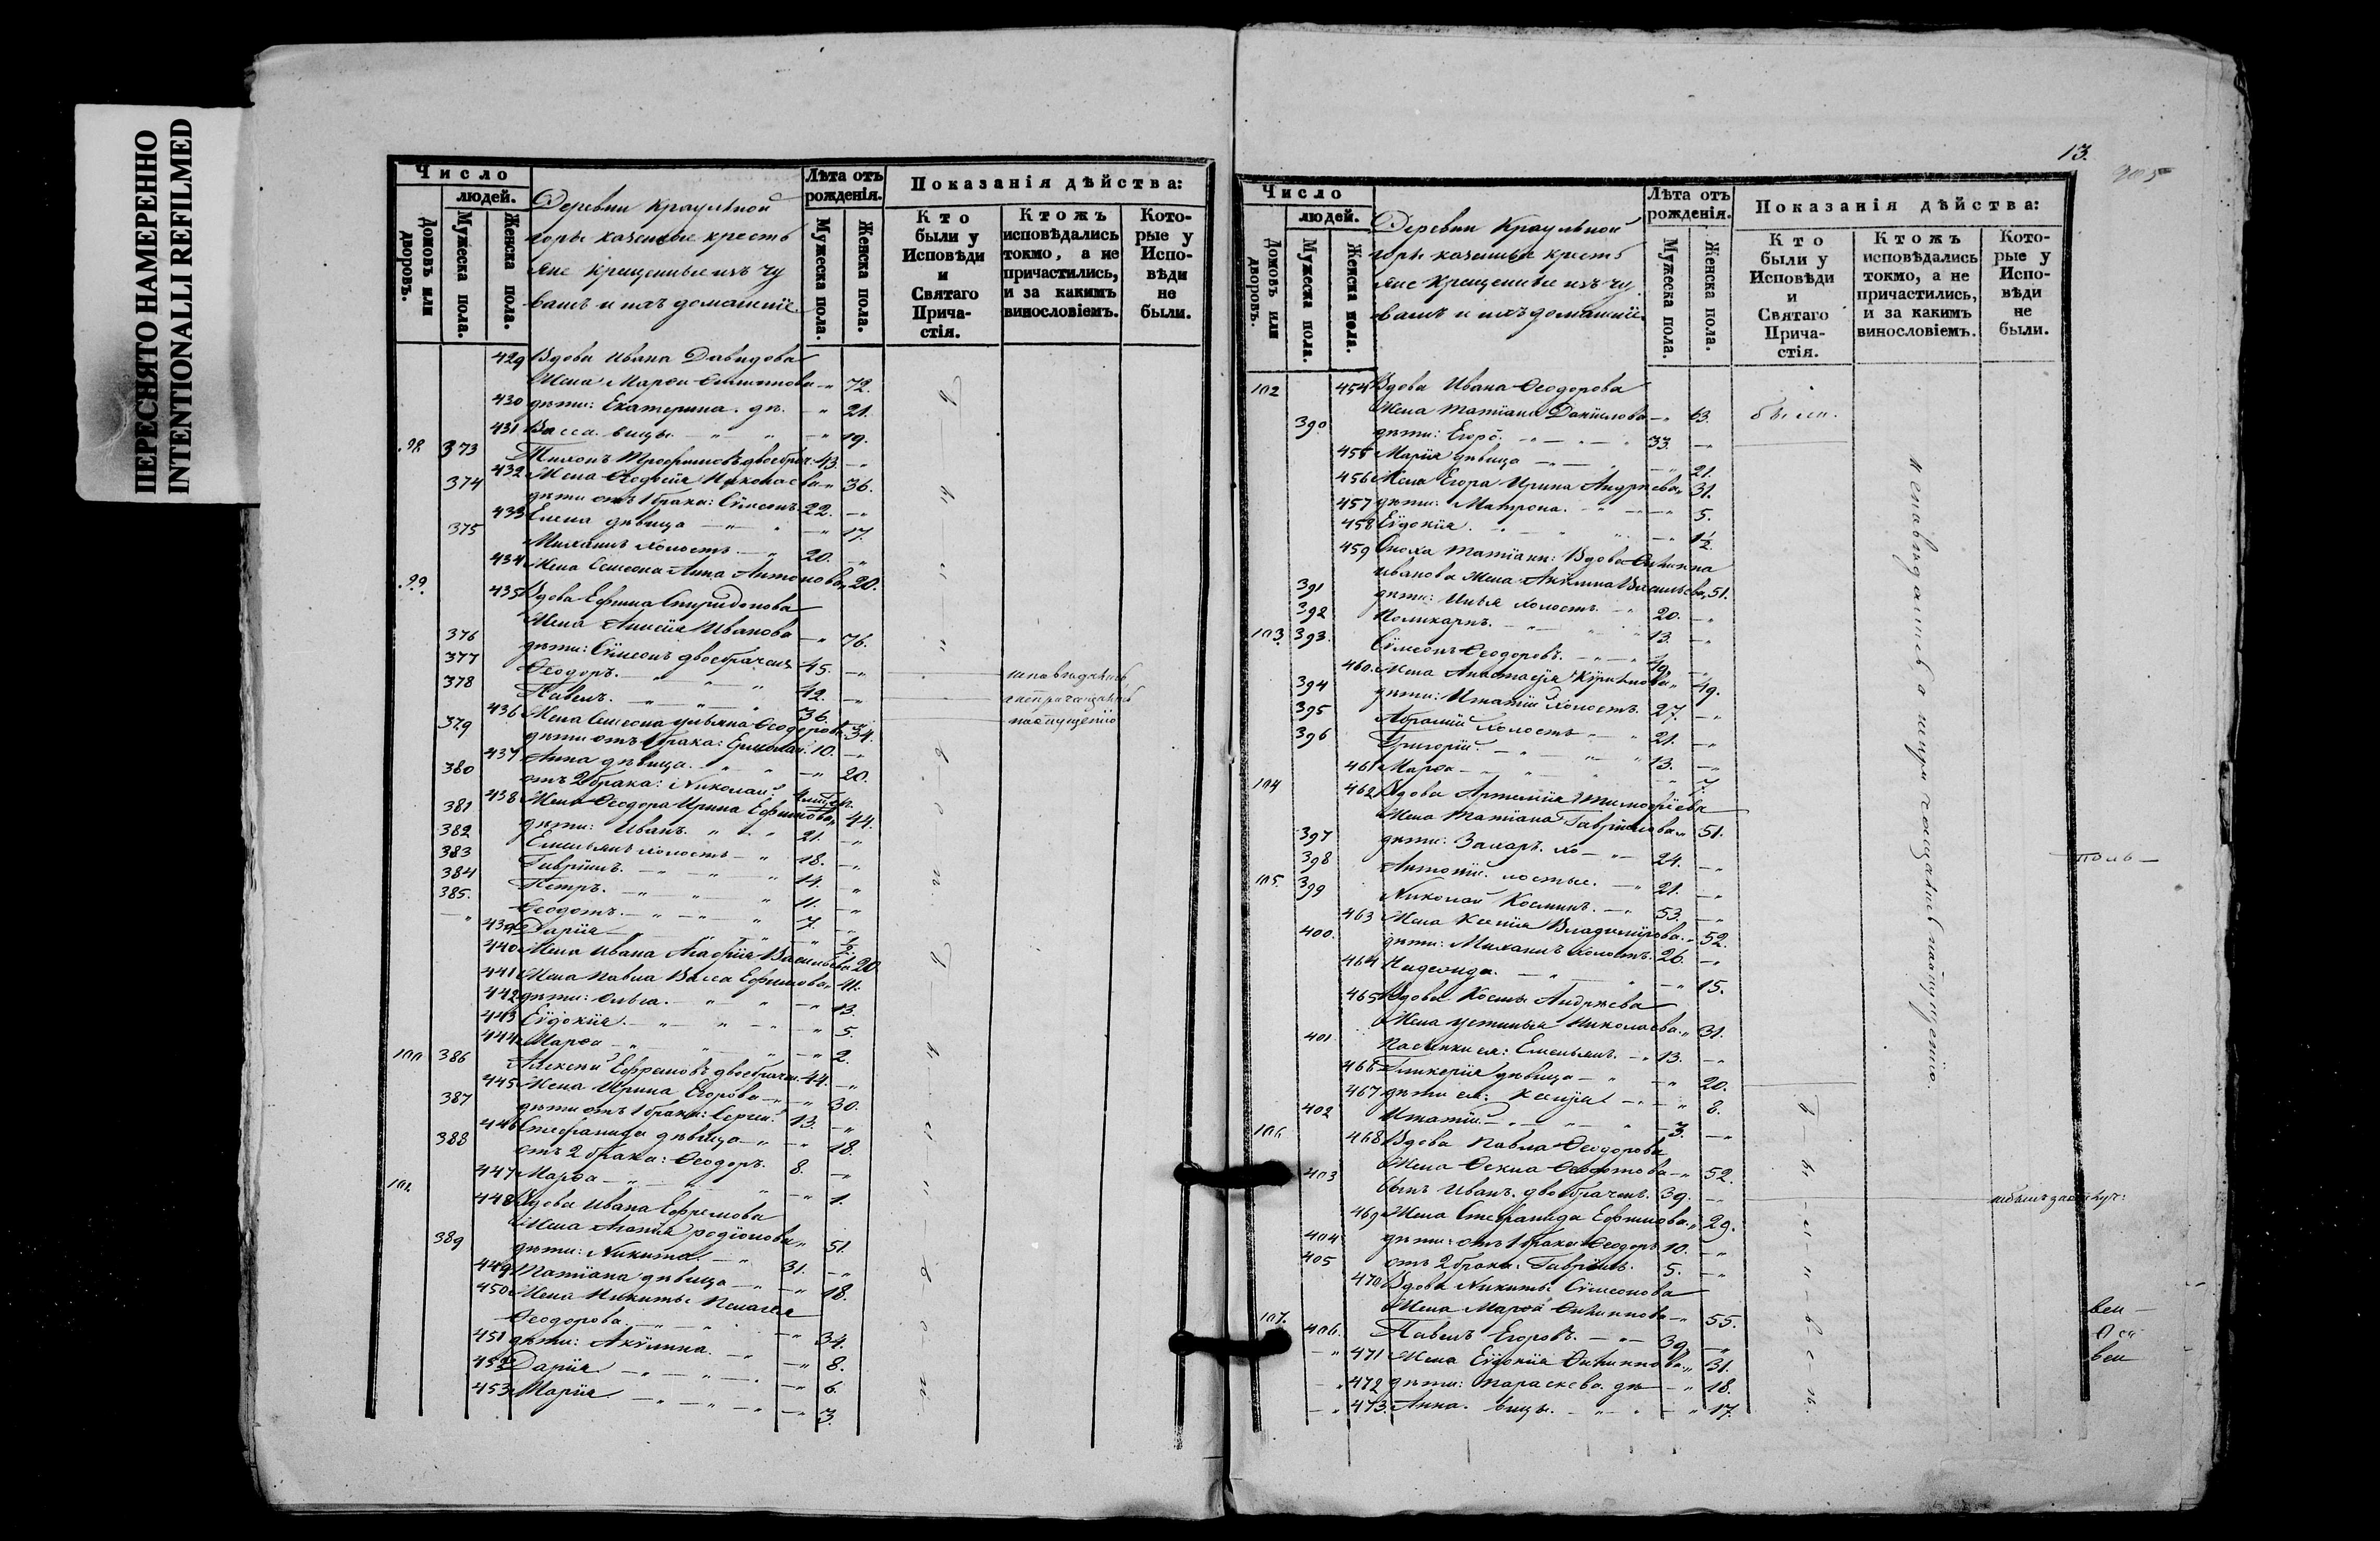 ПЕРЕСНЯТО НАМЕРЕННО
INTENTIONALLI REFILMED
Число
людей.
Домовъ или дворовъ.
Мужеска пола.
Женска пола.
Деревни Краульной
горы казенные кресть
яне крещеные изъ чу
вашъ и ихъ домашніе.
Лѣта отъ рожденія.
Мужеска пола.
Женска пола.
Показанія дѣйства:
Кто были у Исповѣди и Святаго Прича-стія.
Ктожъ исповѣдались токмо, а не причастились, и за какимъ винословіемъ.
Кото-рые у Испо-вѣди не были.
429 Вдова Ивана Давыдова
жена Марѳа 72.
430 дѣти: Екатерина дѣ. 21.
431 Васса вицы 19.
98 373 Тихонъ Трофимовъ двоебрач. 43.
432 Жена Ѳедосія Николаева 36.
374 дѣти отъ 1 брака: Сѵмеонъ 22.
433 Елена дѣвица 17.
375 Михаилъ холостъ 20.
434 Жена Семеона Анна Антонова 20.
99. 435 Вдова Ефима Спиридонова
Жена Анисія Иванова 76.
376 дѣти: Сѵмеонъ двоебраченъ 45.
377 Ѳеодоръ. 42.
378 Павелъ. 36.
436 Жена Семеона Ульяна Ѳеодорова 34.
379 дѣти отъ 1 брака: Ермолай 10.
437 Анна дѣвица 20.
380 отъ 2 брака: Николай
438 Жена Ѳеодора Ирина Ефимова 44.
381 дѣти: Иванъ. 21.
382 Емельянъ холостъ 18.
383 Гавріилъ. 14.
384 Петръ. 11.
385. Ѳеодотъ. 7.
439 Дарія ½
440 Жена Ивана Агафія Васильева 20.
441 Жена Павла Васса Ефимова 41.
442 дѣти: Ольга. 13.
443 Еѵдокія. 5.
444 Марѳа 2.
100 386 Алексѣй Ефремовъ двоебрачн. 44.
445 Жена Ирина Егорова 30.
387 дѣти отъ 1 брака: Сергей 13.
446 Стефанида дѣвица 18.
388 отъ 2 брака: Ѳеодоръ. 8.
447 Марѳа 1.
101. 448 Вдова Ивана Ефремова
Жена Агафія Родіонова 51.
389 дѣти: Никита 31.
449 Татіана дѣвица 18.
450 Жена Никиты Пелагея
Ѳеодорова. 34.
451 дѣти: Акѵлина. 8.
452 Дарія 6.
453 Марія 3.
13.
Число
людей.
Домовъ или дворовъ.
Мужеска пола.
Женска пола.
Деревни Краульной
горы казенные кресть
яне крещеные изъ чу
вашъ и ихъ домашніе
Лѣта отъ рожденія.
Мужеска пола.
Женска пола.
Показанія дѣйства:
Кто были у Исповѣди и Святаго Прича-стія.
Ктожъ исповѣдались токмо, а не причастились, и за какимъ винословіемъ.
Кото-рые у Испо-вѣди не были.
102 454 Вдова Ивана Ѳеодорова
Жена Татіана Даніилова 63. были.
390 дѣти: Егоръ. 33.
455 Марія дѣвица 21.
456 Жена Егора Ирина Андреева 31.
457 дѣти: Матрона. 5.
458 Еѵдокія. 1½.
459 Сноха Татіаны: Вдова Филиппа
Иванова жена Акѵлина Васильева 51.
391 дѣти: Илья холостъ 20.
392 Поликарпъ. 13.
103. 393. Сѵмеонъ Ѳеодоровъ. 49.
460. Жена Анастасія Кѵрилова 49.
394 дѣти: Игнатій холостъ. 27.
395 Абрамій холостъ 21.
396 Григорій. 13.
461 Марѳа 7.
104 462 Вдова Артемія Тимофѣева
Жена Татіана Гавріилова 51.
397 дѣти: Захаръ. хо 24.
398 Антоній. лостые. 21.
105. 399 Николай Косминъ. 53.
463 Жена Ксенія Владимірова. 52.
400. дѣти: Михаилъ холостъ. 26.
464 15.
465 Вдова Космы Андреева
Жена Устинья Николаева 31.
401 Пасынки ея: Емельянъ. 13.
466 Гликерія дѣвица 20.
467 дѣти ея: Ксенія 8.
402 Игнатій 3.
106 468 Вдова Павла Ѳеодорова
Жена Ѳекла Ѳедотова 52.
403 Сынъ Иванъ. двоебраченъ. 39.
469 Жена Стефанида Ефимова 29.
404 дѣти: отъ 1 брака Ѳеодоръ 10.
405 отъ 2 брака: Гавріилъ. 5.
470 Вдова Никиты Сѵмеонова
Жена Марѳа Филиппова 55.
107. 406. Павелъ Егоровъ. 39.
471 Жена Еѵдокія Филиппова 31.
472 дѣти: Параскева. дѣ 18.
473. Анна. вицы. 17.